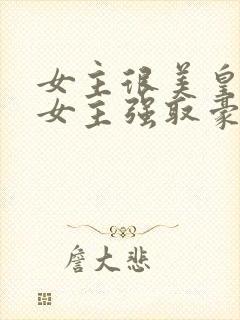 女主很美皇
女主强取豪
詹大悲